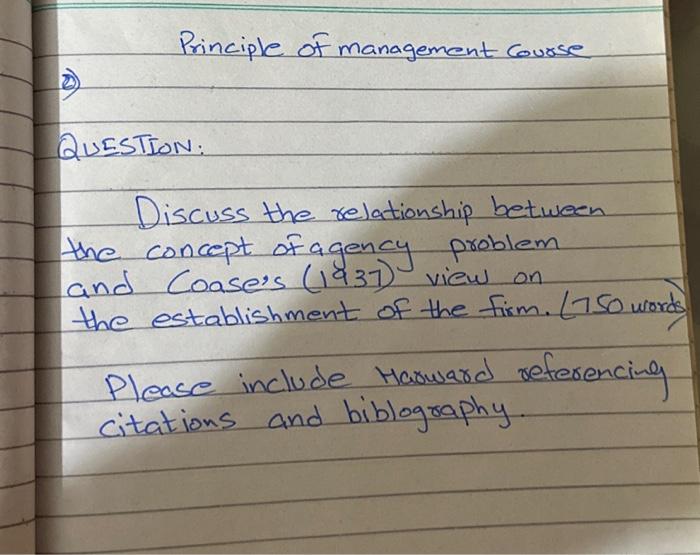 Principle of management Course
2)
QUESTION:
Discuss the relationship between
the concept of agency problem
and Coase's (1937) view on
the establishment of the firm. (750 words)
Please include Harward referencing
citations and biblography.